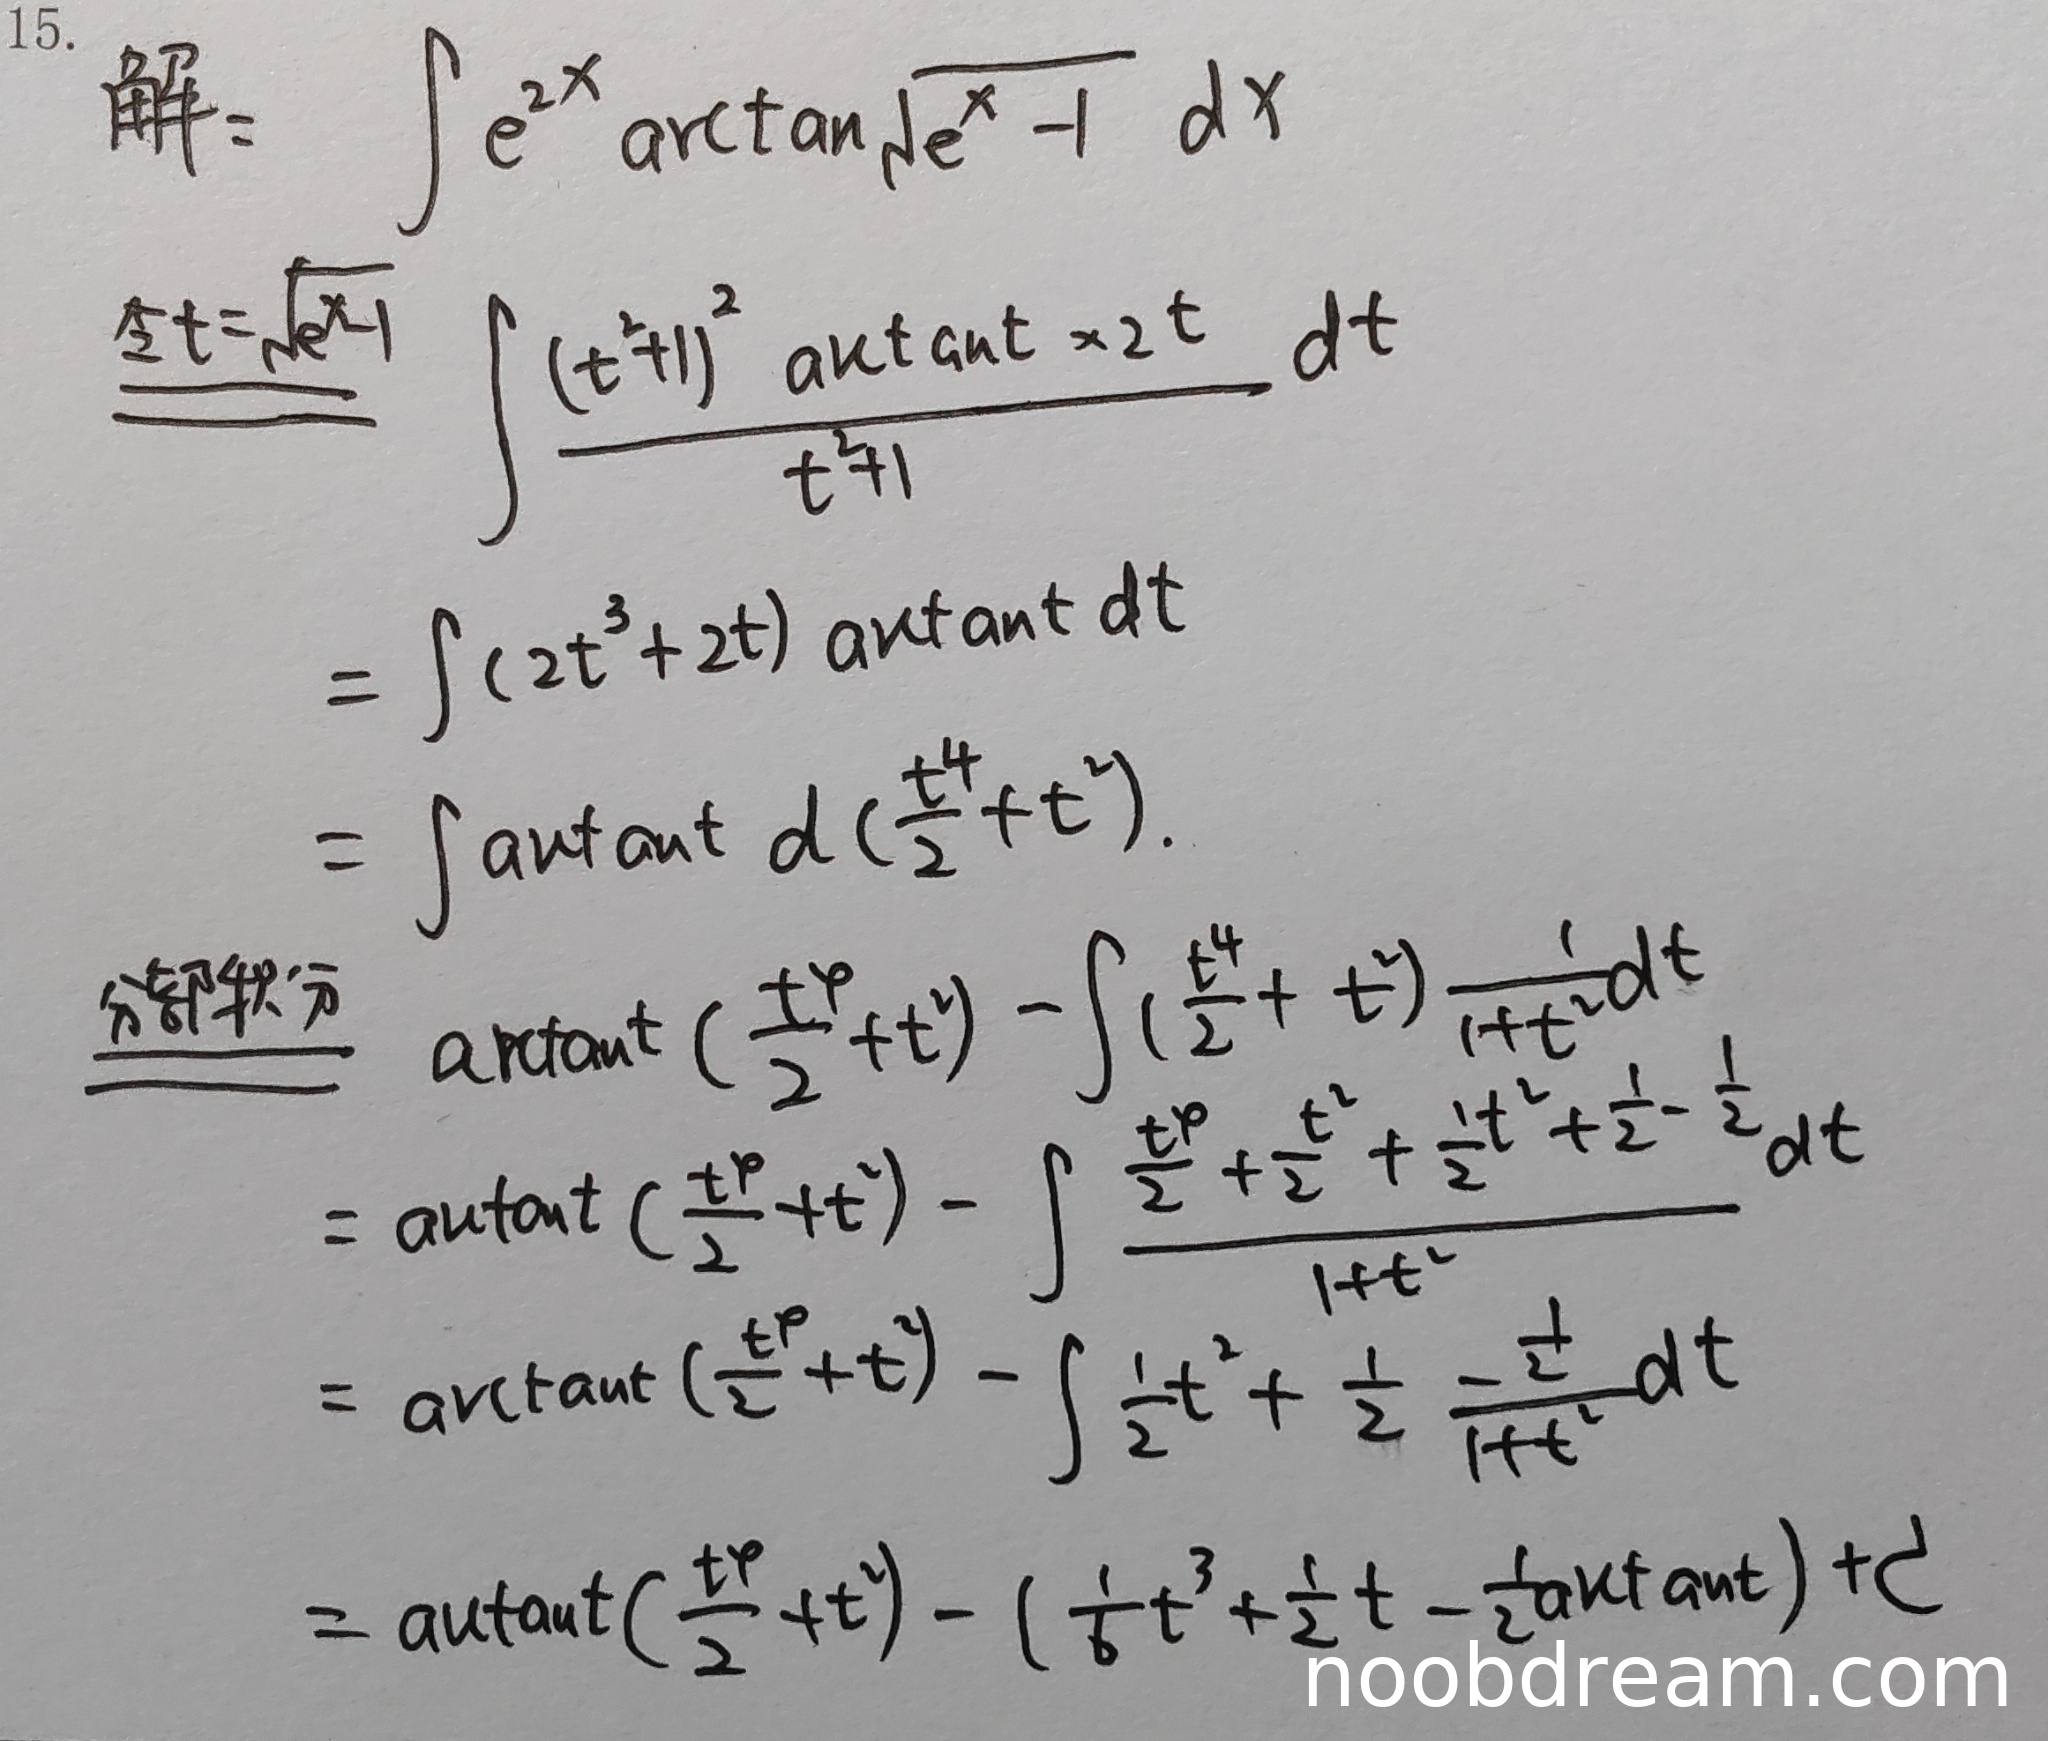 15.
解: ∫ e^{2x} arctan √(e^x - 1) dx
令t=√(e^x-1) ∫ ((t²+1)² arctant × 2t)/(t²+1) dt
= ∫ (2t³ + 2t) arctant dt
= ∫ arctant d (t⁴/2 + t²).
分部积分 arctant (t⁴/2 + t²) - ∫ (t⁴/2 + t²) 1/(1+t²) dt
= arctant (t⁴/2 + t²) - ∫ (t⁴/2 + t²/2 + 1/2 t² + 1/2 - 1/2)/(1+t²) dt
= arctant (t⁴/2 + t²) - ∫ 1/2 t² + 1/2 (-1/2)/(1+t²) dt
= arctant (t⁴/2 + t²) - (1/6 t³ + 1/2 t - 1/2 arctant) + C
noobdream.com